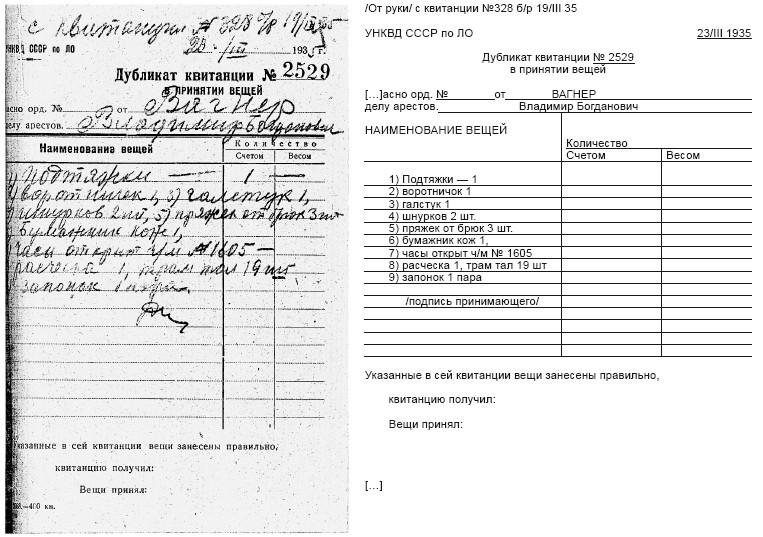 с квитанции № 328 б/р 19/III 35
УНКВД СССР по ЛО
23/III 1935 г.
Дубликат квитанции № 2529
В ПРИНЯТИИ ВЕЩЕЙ
асно орд. № от Вагнер
делу арестов. Владимир Богданович
Наименование вещей
Количество
Счетом Весом
1) подтяжки — 1 —
воротничек 1, 3) галстук 1,
шнурков 2 шт, 5) пряжек от брюк 3 шт
бумажник кож 1,
часы открыт ч/м № 1605 —
расческа 1, трам тал 19 шт
запонок 1 пара.
Указанные в сей квитанции вещи занесены правильно,
квитанцию получил:
Вещи принял:
—400 кн.
/От руки/ с квитанции №328 б/р 19/III 35
УНКВД СССР по ЛО 23/III 1935
Дубликат квитанции № 2529
в принятии вещей
[...]асно орд. № от ВАГНЕР
делу арестов. Владимир Богданович
НАИМЕНОВАНИЕ ВЕЩЕЙ
Количество
Счетом Весом
1) Подтяжки — 1
2) воротничок 1
3) галстук 1
4) шнурков 2 шт.
5) пряжек от брюк 3 шт.
6) бумажник кож 1,
7) часы открыт ч/м № 1605
8) расческа 1, трам тал 19 шт
9) запонок 1 пара
/подпись принимающего/
Указанные в сей квитанции вещи занесены правильно,
квитанцию получил:
Вещи принял:
[...]